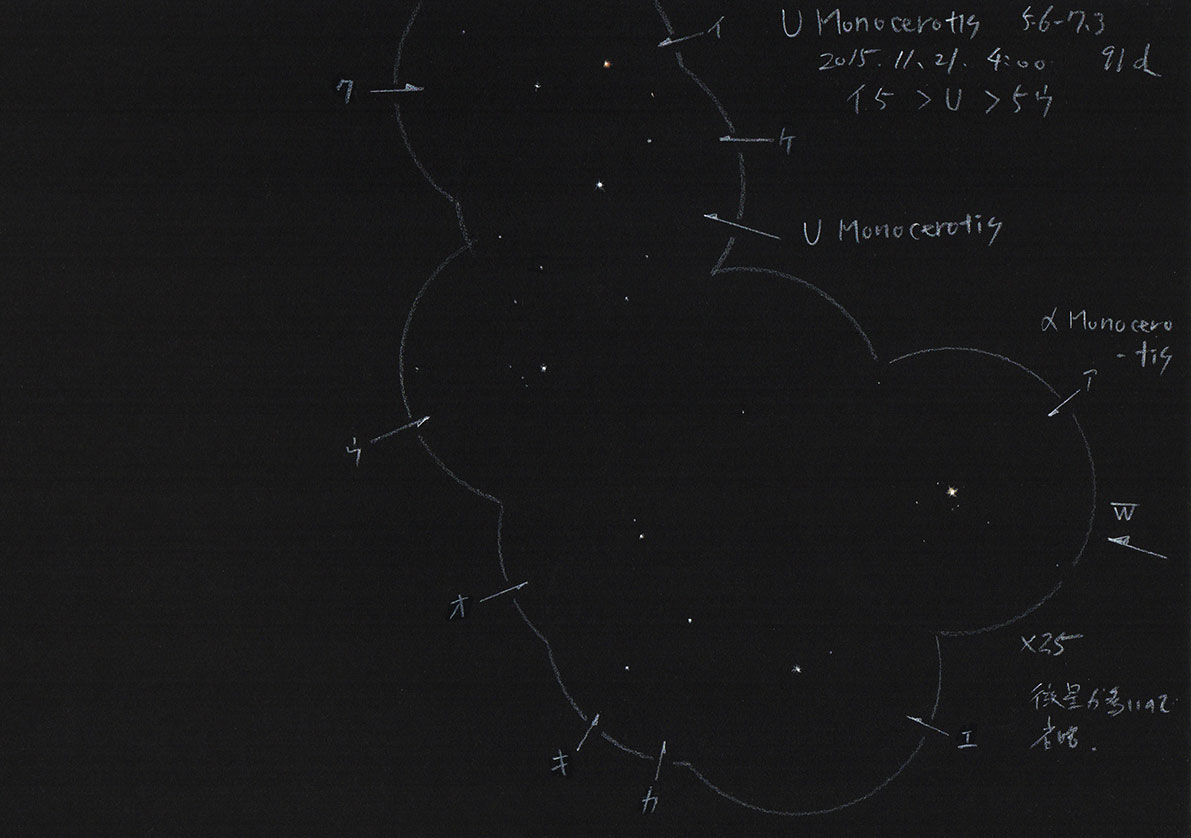 U Monocerotis 5.6-7.3
2015.11.21. 4:00 91d
イ5 > U > 5ウ
イ
ク
ケ
U Monocerotis
α Monocero
-tis
ア
ウ
W
オ
×25
微星が多いので
省略.
エ
キ
カ